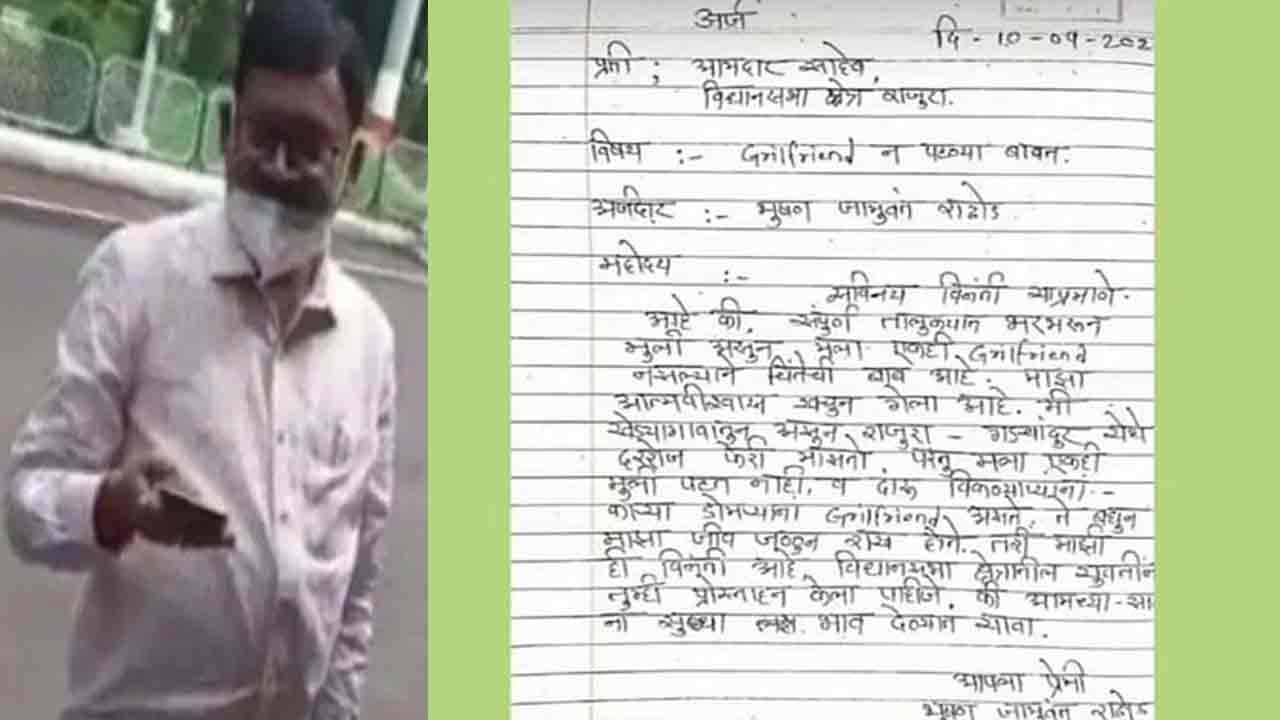 अर्ज
दि - 10-09-202
प्रती ; आमदार साहेब,
विधानसभा क्षेत्र राजुरा.
विषय :- Grilfriend न पटण्या बाबत.
अर्जदार :- भुषण जामुवंत राठोड
महोदय :-
सविनय विनंती याप्रमाणे
आहे की, संपुर्ण तालुक्यात भरभरून
मुली असुन, मुला एकही Grilfriend
नसल्याने चिंतेची बाब आहे. माझा
आत्मविश्वास खचुन गेला आहे. मी
खेड्यागावातुन असुन राजुरा - गडचांदुर येथे
दररोज फेरी मारतो, परंतु मला एकही
मुली पटत नाही. व दारु विकणाऱ्यांना -
काऱ्या डोमड्याना Grilfriend असते. ते बघुन
माझा जीव जळुन राख होते. तरी माझी
ही विनंती आहे, विधानसभा क्षेत्रातील युवतींन
तुम्ही प्रोत्साहन केला पाहिजे. की आमच्या-सा
ना सुध्दा भाव देण्यात यावा.
आपला प्रेमी
भुषण जामुवंत राठोड